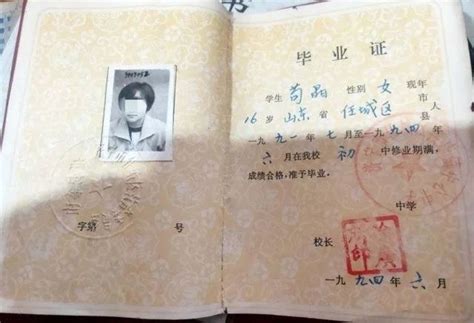 字第 号
毕业证
学生 苟晶 性别 女 现年
16岁 山东 省 任城区 市县 人
一九九一 年 七 月至一九九四 年
六 月在我校 初 中修业期满,
成绩合格,准予毕业。
中学
校长
一九九四年六月